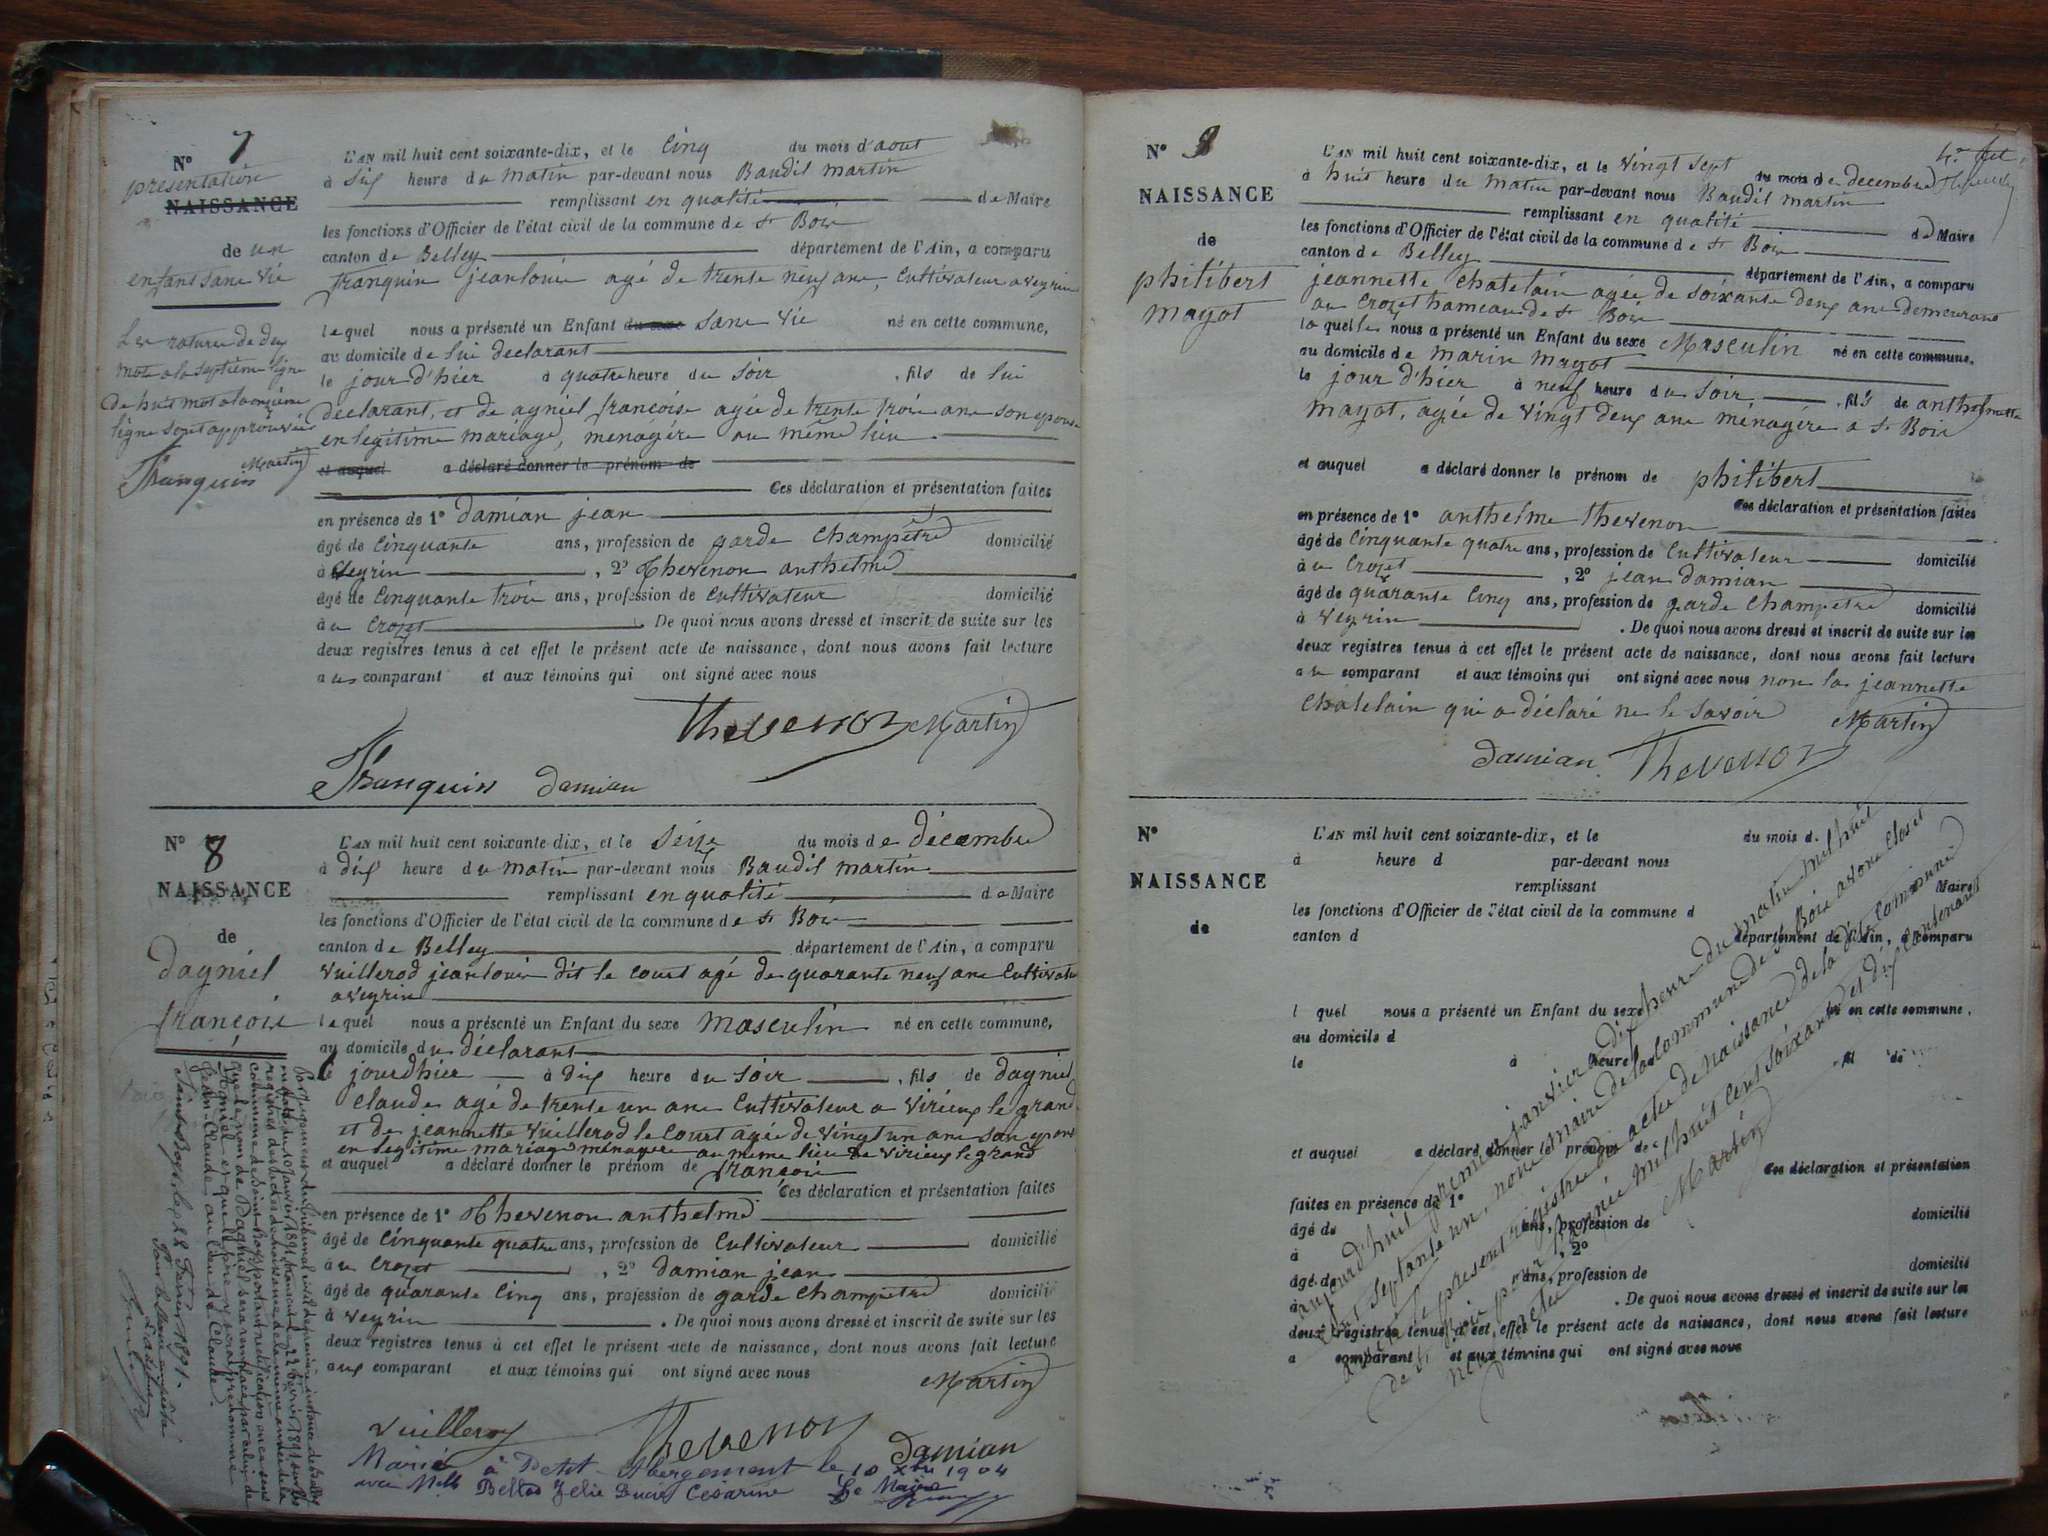 N° 7
présentation
NAISSANCE
de un
enfant sans vie
Les ratures de deux
mots a la septième ligne
de huit mots a la onzième
ligne sont approuvés
Franquin Martin
L'AN mil huit cent soixante-dix, et le cinq du mois d'aout
à six heure du matin par-devant nous Baudil martin
remplissant en qualité de Maire
les fonctions d'Officier de l'état civil de la commune de St Bois
canton de Belley département de l'Ain, a comparu
franquin jeanlouis agé de trente neuf ans, cultivateur a veyrin
lequel nous a présenté un Enfant du sexe sans vie né en cette commune,
au domicile de lui declarant
le jour d'hier à quatre heure du soir, fils de lui
declarant, et de agniel françoise agée de trente trois ans son epouse
en legitime mariage, menagère au même lieu
et auquel a déclaré donner le prénom de
Ces déclaration et présentation faites
en présence de 1° damian jean
âgé de cinquante ans, profession de garde champêtre domicilié
à veyrin, 2° Thevenon anthelme
âgé de cinquante trois ans, profession de cultivateur domicilié
à u crozet. De quoi nous avons dressé et inscrit de suite sur les
deux registres tenus à cet effet le présent acte de naissance, dont nous avons fait lecture
aux comparant et aux témoins qui ont signé avec nous
Thevenon Martin
Franquin damian
N° 8
NAISSANCE
de
dagniel
françois
L'AN mil huit cent soixante-dix, et le seize du mois de décembre
à dix heure du matin par-devant nous Baudil martin
remplissant en qualité de Maire
les fonctions d'Officier de l'état civil de la commune de St Bois
canton de Belley département de l'Ain, a comparu
Vuillerod jeanlouis dit le court agé de quarante neuf ans cultivateur
a veyrin
lequel nous a présenté un Enfant du sexe masculin né en cette commune,
au domicile du déclarant
le jour d'hier à dix heure du soir, fils de dagniel
claude agé de trente un ans cultivateur a virieux le grand
et de jeannette Vuillerod le court agée de vingt un ans son epouse
en legitime mariage ménagère au meme lieu de virieux le grand
et auquel a déclaré donner le prénom de françois
Ces déclaration et présentation faites
en présence de 1° Thevenon anthelme
âgé de cinquante quatre ans, profession de cultivateur domicilié
à u crozet, 2° damian jean
âgé de quarante cinq ans, profession de garde champêtre domicilié
à veyrin. De quoi nous avons dressé et inscrit de suite sur les
deux registres tenus à cet effet le présent acte de naissance, dont nous avons fait lecture
aux comparant et aux témoins qui ont signé avec nous
Martin
Vuillerod Thevenon damian
Marié à Petit-Abergement le 10 Xbre 1904
avec Melle Belloo Zélie Césarine Le Maire
Par jugement du tribunal civil de première instance de Belley
en date du 10 Janvier 1891, transcrit le 22 février 1891 sur les
registres des actes de naissance de la même année de la
commune de Saint-Bois, portant rectification en ce sens
que le nom de Dagniel sera remplacé par celui de
Agniel et que le père y sera prénommé
Jean Claude au lieu de Claude.
Saint-Bois, le 22 Février 1891.
N° 9
NAISSANCE
de
philibert
mayot
4e fet
L'AN mil huit cent soixante-dix, et le vingt sept du mois de decembre
à huit heure du matin par-devant nous Baudil martin
remplissant en qualité de Maire
les fonctions d'Officier de l'état civil de la commune de St Bois
canton de Belley département de l'Ain, a comparu
jeannette chatelain agée de soixante deux ans demeurant
au crozet hameau de St Bois
laquelle nous a présenté un Enfant du sexe Masculin né en cette commune.
au domicile de marin mayot
le jour d'hier à neuf heure du soir, fils de anthelmette
mayot, agée de vingt deux ans ménagère a St Bois
et auquel a déclaré donner le prénom de philibert
Ces déclaration et présentation faites
en présence de 1° anthelme thevenon
âgé de cinquante quatre ans, profession de cultivateur domicilié
à u crozet, 2° jean damian
âgé de quarante cinq ans, profession de garde champêtre domicilié
à veyrin. De quoi nous avons dressé et inscrit de suite sur les
deux registres tenus à cet effet le présent acte de naissance, dont nous avons fait lecture
aux comparant et aux témoins qui ont signé avec nous non la jeannette
chatelain qui a déclaré ne le savoir Martin
damian Thevenon
N°
NAISSANCE
de
L'AN mil huit cent soixante-dix, et le du mois d.
à heure d par-devant nous
remplissant Maire
les fonctions d'Officier de l'état civil de la commune d
canton d département de l'Ain, a comparu
l quel nous a présenté un Enfant du sexe né en cette commune.
au domicile d
le à heure fil de
et auquel a déclaré donner le prénom de
Ces déclaration et présentation
faites en présence de 1°
âgé de ans, profession de domicilié
à, 2°
âgé de ans, profession de domicilié
à. De quoi nous avons dressé et inscrit de suite sur les
deux registres tenus à cet effet le présent acte de naissance, dont nous avons fait lecture
a comparant et aux témoins qui ont signé avec nous
aujourd'hui premier janvier dix heure du matin mil huit
cent septante un, nous maire de la commune de St Bois avons clos et
arrêté le présent registre des actes de naissance de la dite commune
de St Bois pour l'année mil huit cent soixante et dix contenant
neuf actes Martin